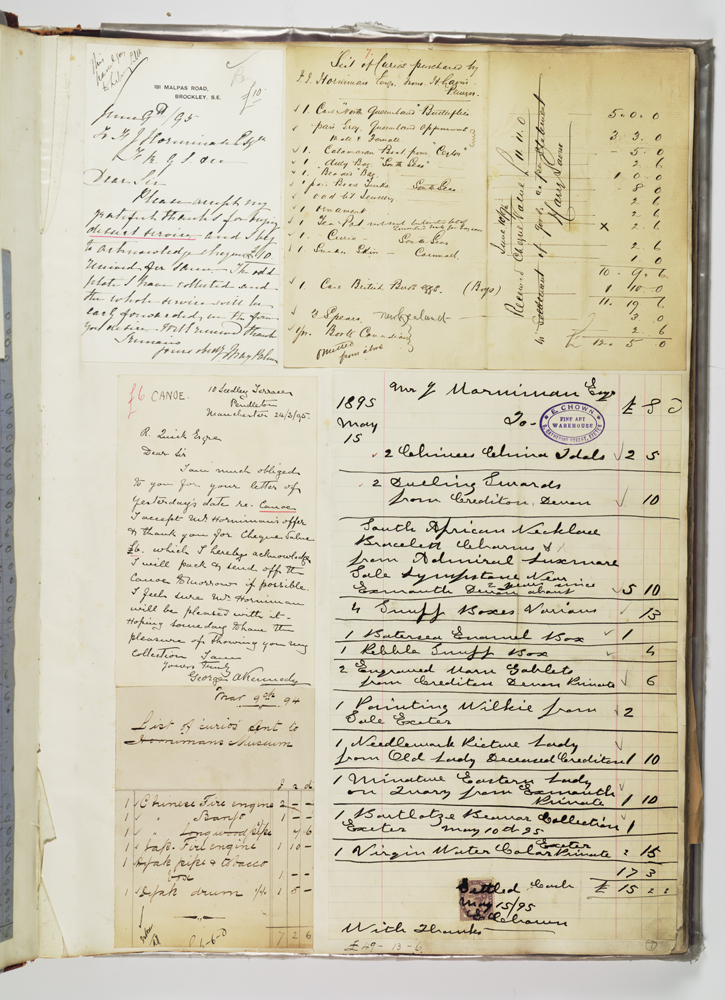 191 MALPAS ROAD,
BROCKLEY, S.E.
£10
June 9th/95
F. J. Horniman Esqr
F. R. G. S &c
Dear Sir
Please accept my
grateful thanks for buying
dessert service and I beg
to acknowledge cheque £10
received for same. The odd
plate I have collected and
the whole service will be
7.
List of Curios purchased by
F. J. Horniman Esqr. from H. Lavis
1 Case "North Queensland" Butterflies 5. 0. 0
1 pair Grey Queensland
Male & Female 3. 3. 0
1. Catamaran Boat from "Ceylon" 5. 0
1. Dilly Bag "South Seas" 2. 6
1. Beaver Bag 1. 0. 0
1 pair South Seas 8. 0
2. 6
1 Ornament 2. 6
X 2. 6
1. Curio - South Seas 2. 6
1. Snake Skin - Cornwall 1. 0
10. 9. 6
1 Case British Birds eggs. (Boys) 1. 10. 0
11. 19. 6
2 Spears, New Zealand 3. 0
1 pr. Boots Canadian 2. 6
omitted
from above
£ 12. 5. 0
June 10/95
Received Cheque Value £12. 5. 0
in settlement of goods as per statement
Harry Lavis
£6 CANOE.
10 Seedley Terrace
Pendleton
Manchester 24/3/95.
R. Quick Esqre
Dear Sir
I am much obliged
to you for your letter of
yesterday's date re. Canoe
I accept Mr Horniman's offer
& thank you for Cheque Value
£6. which I hereby acknowledge
I will pack & send off the
Canoe tomorrow if possible.
I feel sure Mr Horniman
will be pleased with it.
Hoping someday to have the
pleasure of showing you my
collection I am
Yours truly
George A Kennedy
Mar 9th 94
List of curios sent to
Hornimans Museum
£ s d
1 Chinese Fire engine 2 - -
1 " Banjo 1 - -
1 " Longwood pipe 7 6
1 Jap. Fire engine 1 10 -
1 Dyak pipe & tobacco
box 1 - -
1 Dyak drum 1 5 -
7 2 6
Mr J Horniman Esqr
1895
May
15
To -
E. CHOWN
FINE ART
WAREHOUSE
£ S D
2 Chinees China Idols 2 5
2 Dueling Swards
from Crediton, Devon 10
South African Necklace
Bracelett Charms &
from Admiral Luxmare
Sale Lympstone Near
Exmouth Devon about 2 years since 5 10
4 Snuff Boxes Varians 13
1 Batersea Enamel Box 1
1 Pebble Snuff Box 4
2 Engraved Horn Goblets
from Crediton Devon Private 6
1 Painting Wilkie from
Sale Exeter 2
1 Needlewark Picture Lady
from Old Lady Deceased Crediton 1 10
1 Minature Eastern Lady
on Ivary from Exmouth
Private 1 10
1 Bartlotze Beamar Collection
Exeter May 10th 95 1
1 Virgin Water Calar Private Exeter 2 15
17 3
£ 15 2 2
Settled Cash
May 15/95
E Chown
With Thanks
£49-13-6